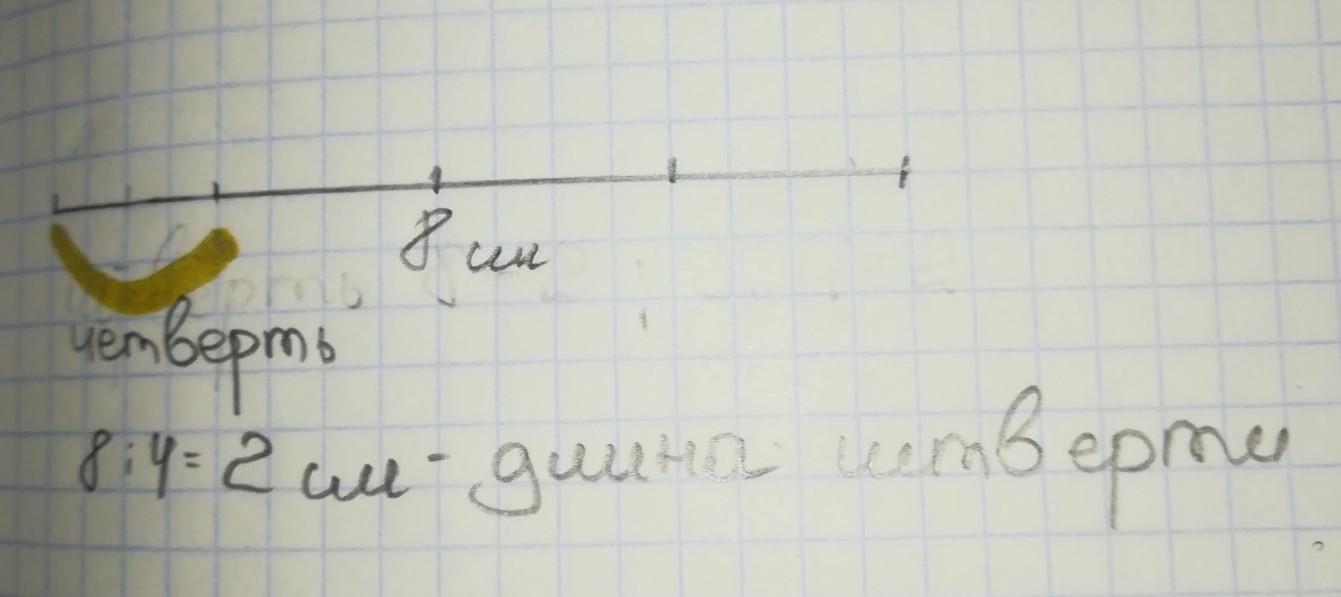 8 см
четверть
8:4=2 см - длина четверти